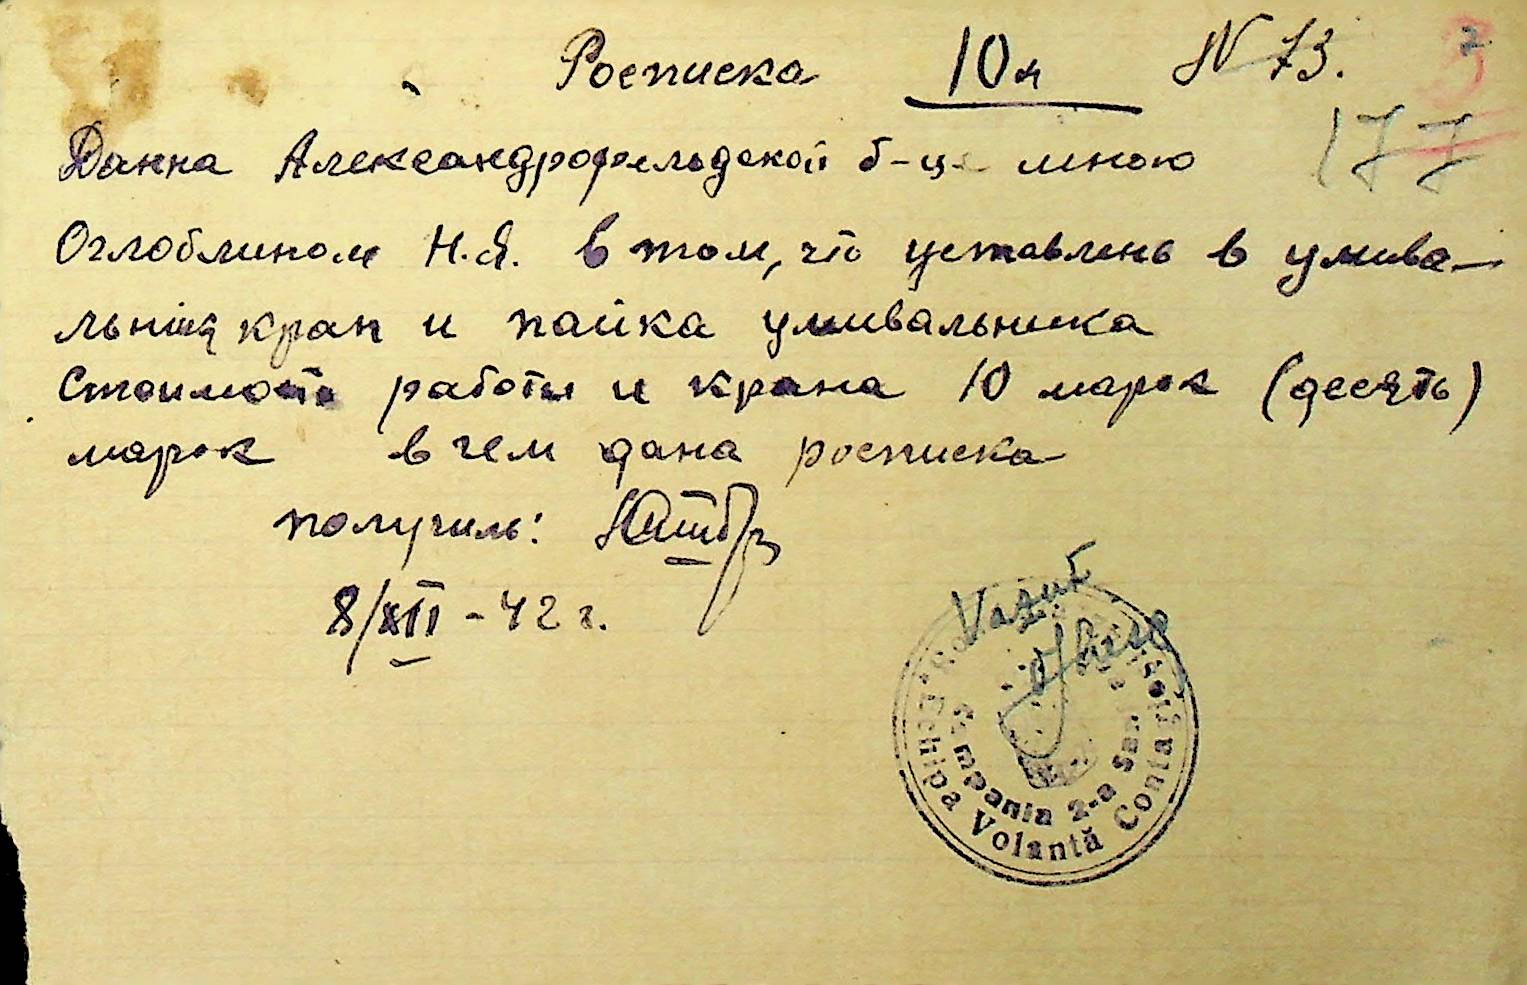 Росписка 10м N 73.
177
Данна Александрофельдской б-це мною
Оглоблином Н.Я. в том, что уставлено в умива-
льник кран и пайка умивальника
Стоимость работы и крана 10 марок (десять)
марок в чем дана росписка
получиль:
8/XII - 42 г.
Echipa Volantă Contag
Compania 2-a San